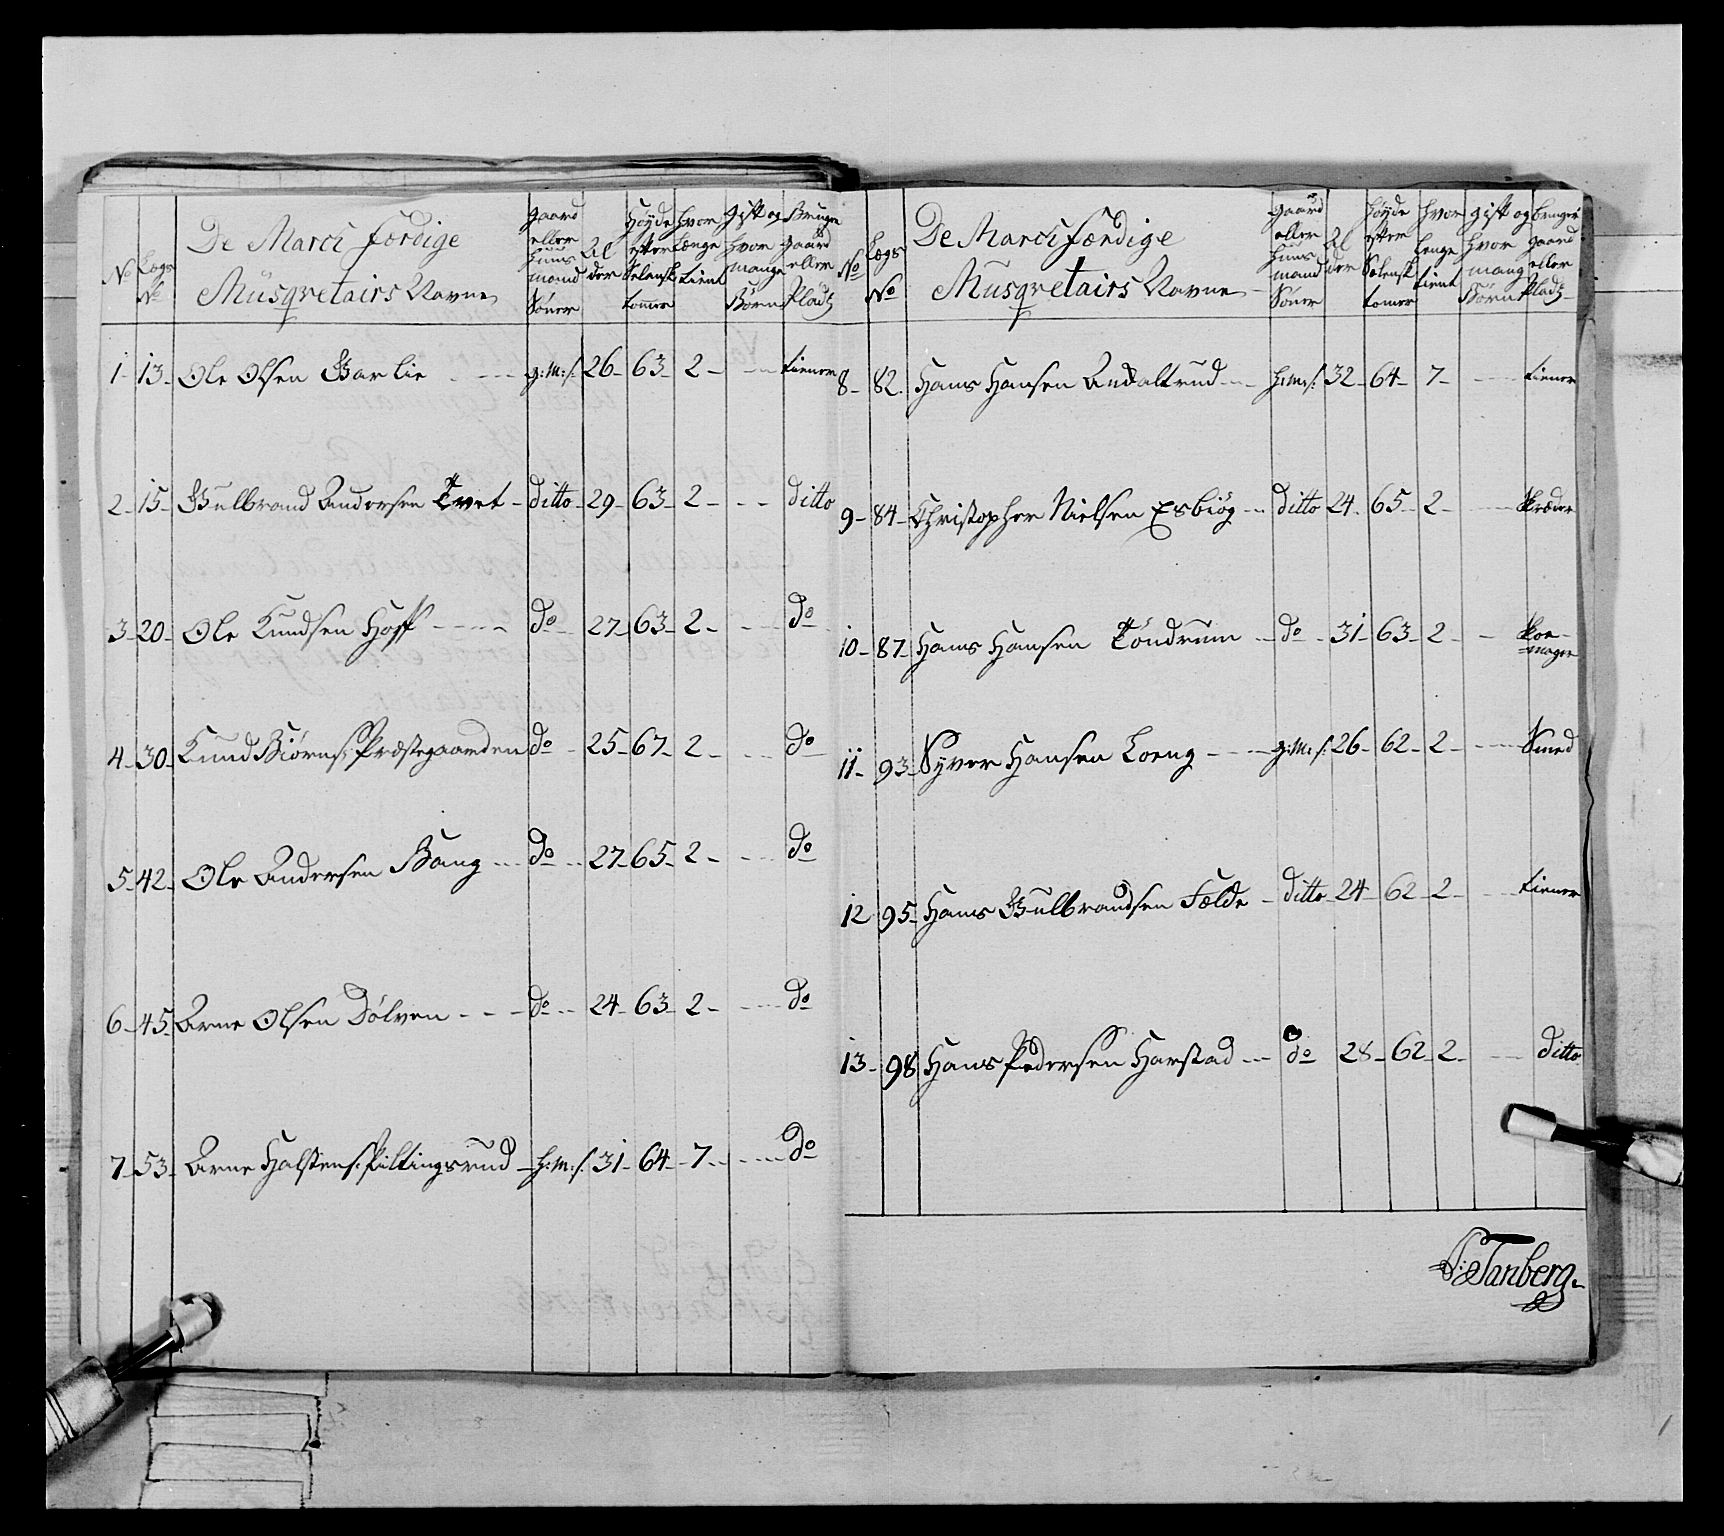 No
Lægs No
De March færdige Musqvetairs Navne
Gaard eller Huus mand Sönner
Al der
Höyde efter Selensk tommer
Hvor Længe tient
Gift og hvor mange Börn
Bruge Gaard eller Pladz
1 13 Ole Olsen Garlie g:M:s: 26 63 2 tiener
2 15 Gulbrand Andersen Tvet ditto 29 63 2 ditto
3 20 Ole Knudsen Hoff do 27 63 2 do
4 30 Knud Biørns: Præstegaarden do 25 67 2 do
5 42 Ole Andersen Bang do 27 65 2 do
6 45 Arne Olsen Dölven do 24 63 2 do
7 53 Arne Halstens: Piltingsrud h:M:s: 31 64 7 do
No
Lægs No
De March færdige Musqvetairs Navne
Gaard eller Huus mand Söner
Al der
Höyde efter Sælensk tomer
Hvor lenge tient
gift og hvor mang Börn
bruger gaard eller Pladz
8 82 Hans Hansen h:M:s: 32 64 7 tiener
9 84 Christopher Nielsen Esbiög ditto 24 65 2 skræder
10 87 Hans Hansen Töndrum do 31 63 2 skoe=
=mager
11 93 Syver Hansen Loeng g:M:s: 26 62 2 Smed
12 95 Hans Gulbrandsen Fælde ditto 24 62 2 tiener
13 98 Hans Pedersen Harstad do 28 62 2 ditto
Tanberg